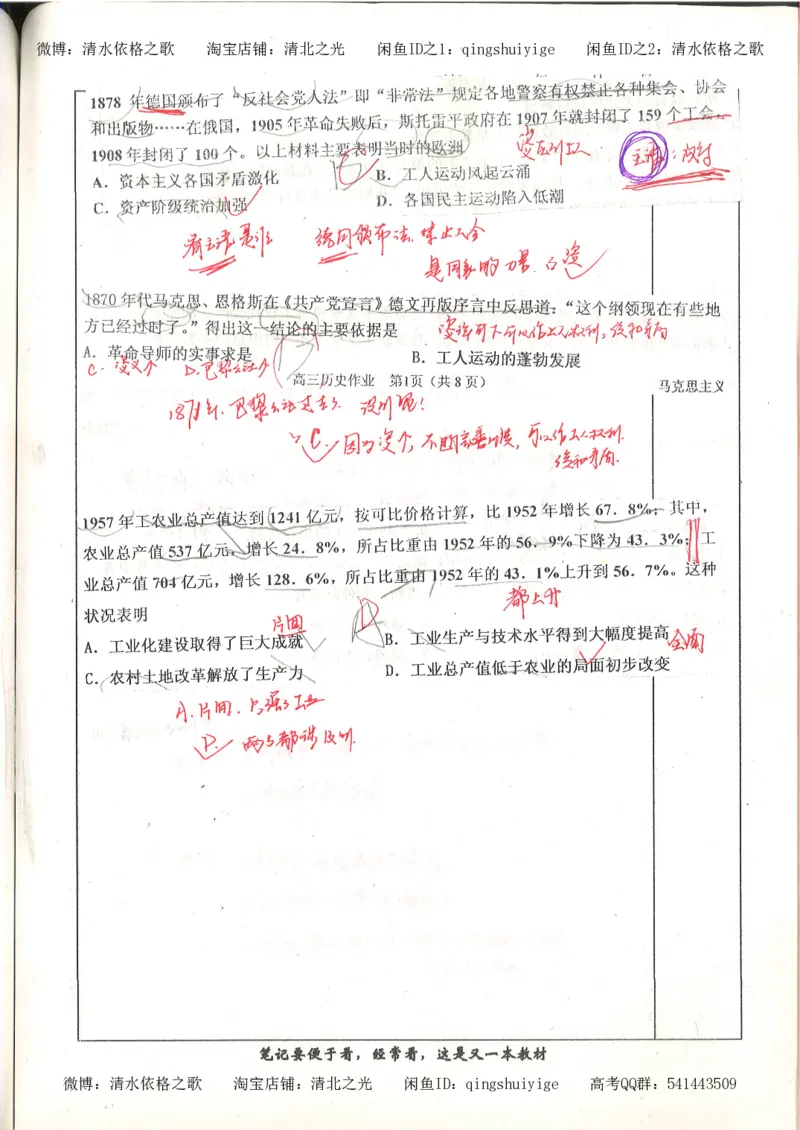 微博：清水依格之歌 淘宝店铺：清北之光 闲鱼ID之1：qingshuiyige 闲鱼ID之2：清水依格之歌
1878 年德国颁布了“反社会党人法”即“非常法”规定各地警察有权禁止各种集会、协会
和出版物……在俄国，1905 年革命失败后，斯托雷平政府在 1907 年就封闭了 159 个工会、
1908 年封闭了 100 个。以上材料主要表明当时的欧洲
A．资本主义各国矛盾激化 B．工人运动风起云涌
C．资产阶级统治加强 D．各国民主运动陷入低潮
看主语是谁 德国颁布法，禁止工会
1870 年代马克思、恩格斯在《共产党宣言》德文再版序言中反思道：“这个纲领现在有些地
方已经过时了。”得出这一结论的主要依据是
A．革命导师的实事求是 B．工人运动的蓬勃发展
高三历史作业 第1页（共 8 页）
马克思主义
1957 年工农业总产值达到 1241 亿元，按可比价格计算，比 1952 年增长 67．8%；其中，
农业总产值 537 亿元，增长 24．8%，所占比重由 1952 年的 56．9%下降为 43．3%；工
业总产值 704 亿元，增长 128．6%，所占比重由 1952 年的 43．1%上升到 56．7%。这种
状况表明
都上升
片面 D
A．工业化建设取得了巨大成就 B．工业生产与技术水平得到大幅度提高
全面
C．农村土地改革解放了生产力 D．工业总产值低于农业的局面初步改变
A.片面．只强了工业
D. 两者都涉及到.
笔记要便于看，经常看，这是又一本教材
微博：清水依格之歌 淘宝店铺：清北之光 闲鱼ID：qingshuiyige 高考QQ群：541443509